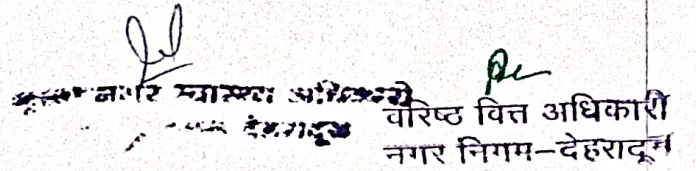 नगर स्वास्थ्य अधिकारी
देहरादून
वरिष्ठ वित्त अधिकारी
नगर निगम-देहरादून